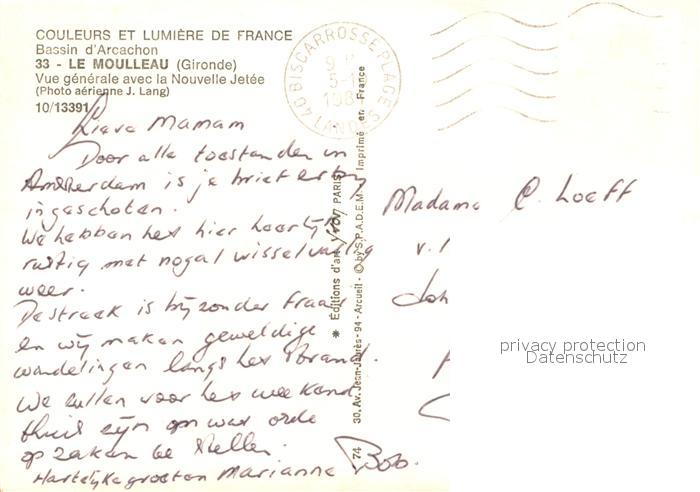 COULEURS ET LUMIÈRE DE FRANCE
Bassin d'Arcachon
33 - LE MOULLEAU (Gironde)
Vue générale avec la Nouvelle Jetée
(Photo aérienne J. Lang)
10/13391
40 BISCARROSSE-PLAGE
LANDES
Lieve Mamam
Door alle toestanden in
Amsterdam is je brief erbij
ingeschoten.
We hebben het hier heerlijk
rustig met nogal wisselvallig
weer.
De streek is bijzonder fraai
en wij maken geweldige
wandelingen langs het strand.
We zullen voor het weekend
thuis zijn om wat orde
op zaken te stellen.
Hartelijke groeten Marianne Bob.
Madame C. Loeff
v.
Joh
privacy protection
Datenschutz
* Éditions d'art Yvon PARIS
30, Av. Jean-Jaurès - 94 - Arcueil - © by S.P.A.D.E.M. Imprimé en France
74